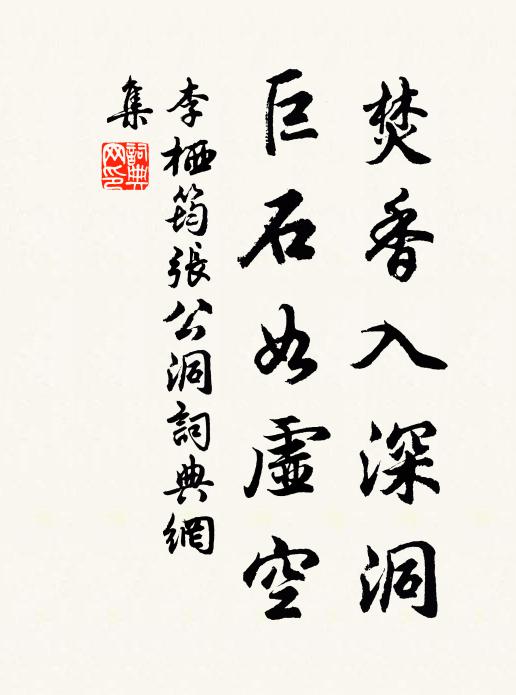 焚香入深洞
巨石如虛空
李栖筠張公洞詞典網
集
詞典
网印